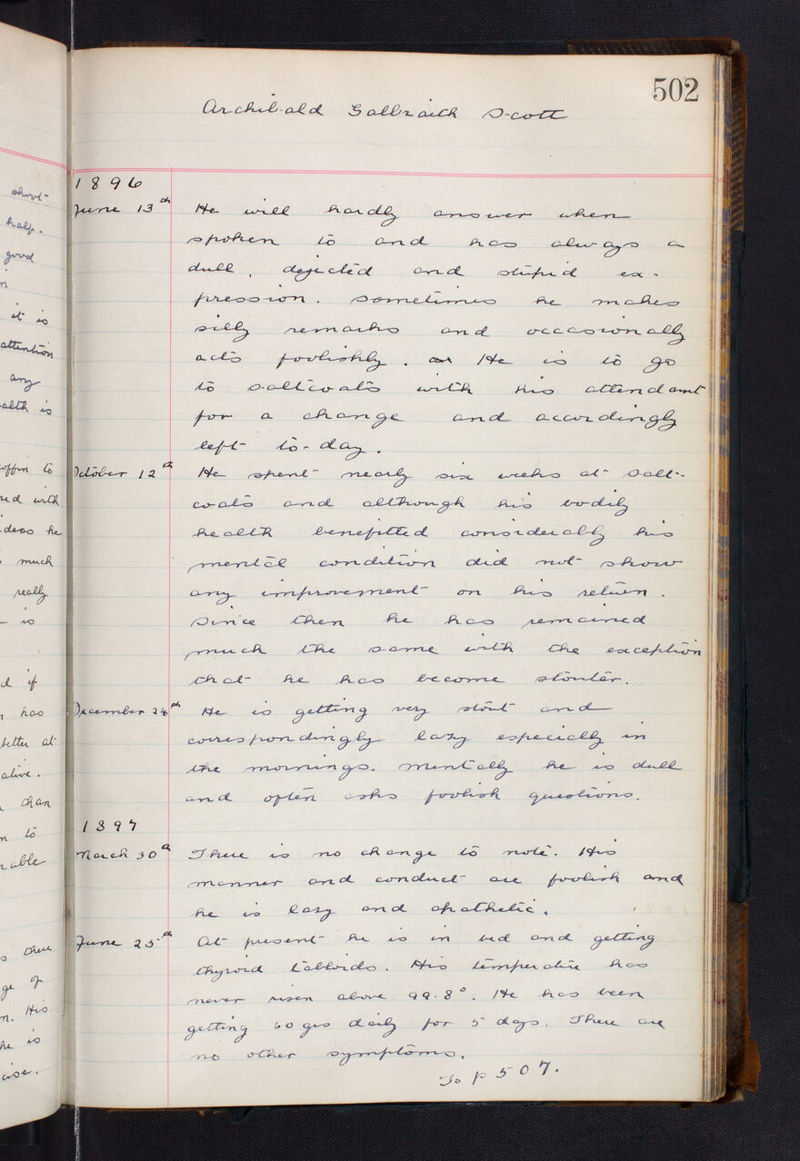 502
Archibald Galbraith Scott
1896
June 13th He will hardly answer when
spoken to and has always a
dull, dejected and stupid ex-
pression. Sometimes he makes
silly remarks and occasionally
acts foolishly. He is to go
to Saltcoats with his attendant
for a change and accordingly
left to-day.
October 12th He spent nearly six weeks at Salt-
coats and although his bodily
health benefitted considerably his
mental condition did not show
any improvement on his return.
Since then he has remained
much the same with the exception
that he has become stouter.
December 26th He is getting very stout and
correspondingly lazy especially in
the mornings. Mentally he is dull
and often asks foolish questions.
1897
March 30th There is no change to note. His
manner and conduct are foolish and
he is lazy and apathetic.
June 25th At present he is in bed and getting
thyroid tabloids. His temperature has
never risen above 99.8°. He has been
getting 60 grs daily for 5 days. There are
no other symptoms.
To p 507.
short-
half.
good
n
it is
attention
any
alth is
offin to
ed with
deas he
much
really
is
d if
has
better at
alive.
than
n to
able
s there
ge of
n. His
he is
cise.